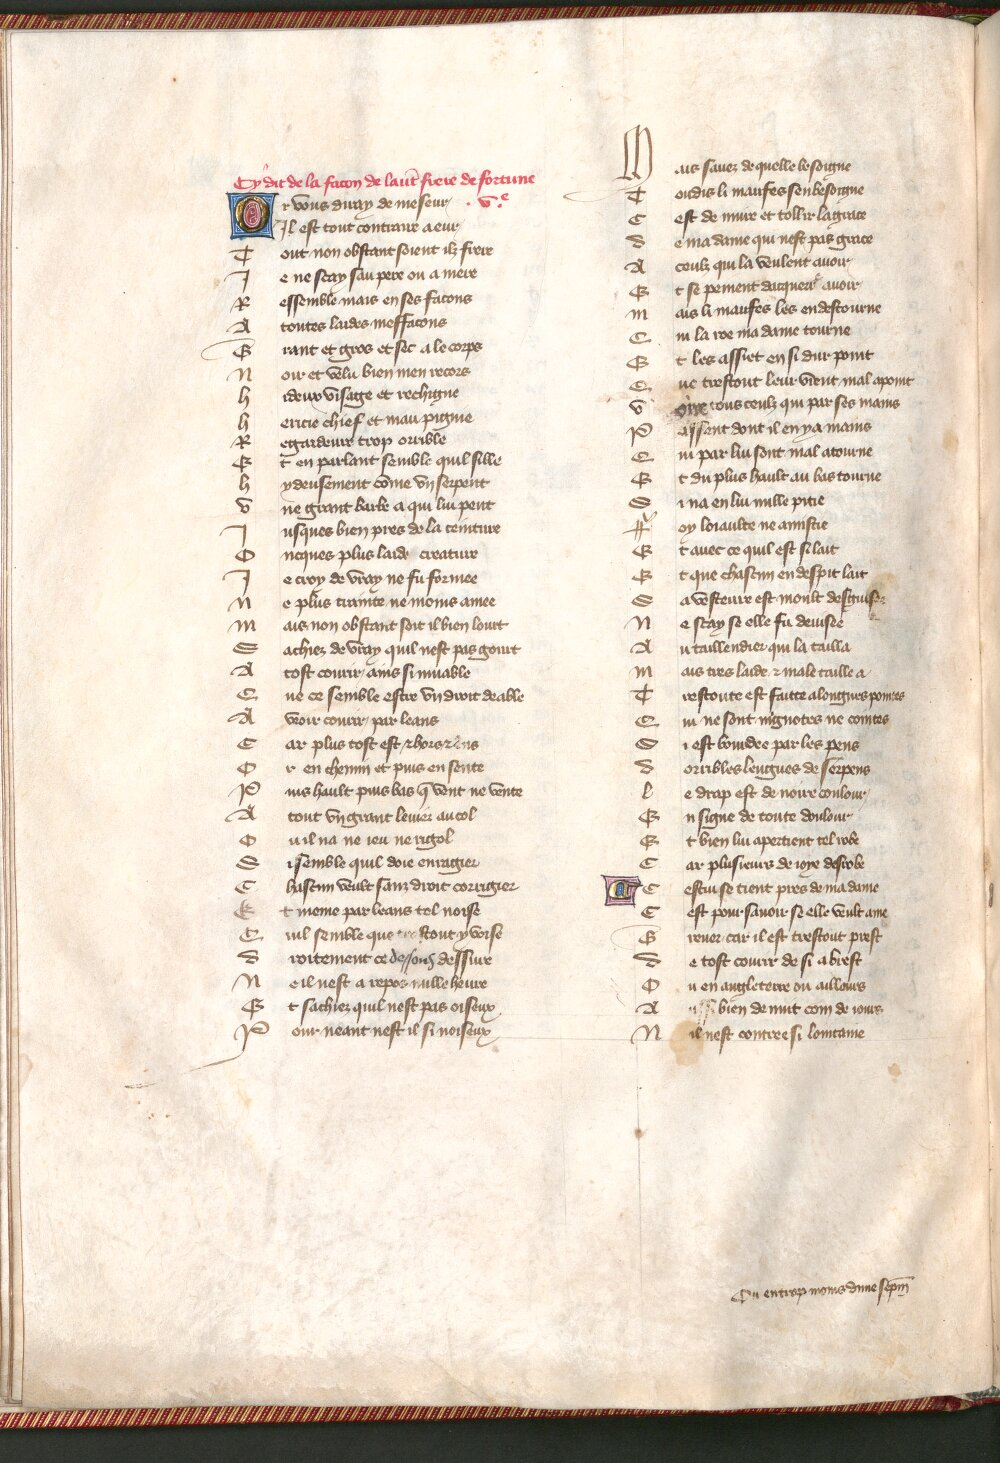 Cy dit de la facon de laut̄ frere de fortune
.v.e
Or vous diray de meseur
Il est tout contraire a eur
Tout non obstant soient ilz frere
Je ne scay sau pere ou a mere
Ressemble mais en ses facons
A toutes laides meffacons
Grant et gros et sec a le corps
Noir et velu bien men recors
hideux visage et rechigne
hericie chief et mau pigne
Regardeure trop orrible
Et en parlant semble quil sille
hydeusement cōme vn serpent
vne grant barbe a qui lui pent
Jusques bien pres de la ceinture
Oncques plus laide creature
Je croy de vray ne fu formee
Ne plus crainte ne moins amee
Mais non obstant soit il bien lourt
Sachiez de vray quil nest pas gourt
A tost courir ains si muable
Que ce semble estre vn droit deable
A veoir courir par leans
Car plus tost est hors
Or en chemin et puis en sente
Puis hault puis bas q̄ vent ne vente
A tout vn grant levier au col
Ou il na ne ieu ne rigol
Si semble quil doie enragier
Chascun veult sanz droit corrigier
Et meine par leans tel noise
Quil semble que trestout y voise
droitement ce dessoubz dessure
Ne il nest a repos nulle heure
Et sachiez quil nest pas oiseux
Pour neant nest il si noiseux
Mais savez de quelle besoigne
Toudis li maufes senbesoigne
Cest de nuire et tollir la grace
de ma dame qui nest pas grace
A ceulz qui la veulent avoir
Et se peinent dacquerir avoir
mais li maufes les en destourne
Cui la roe ma dame tourne
Et les assiet en si dur point
Que trestout leur vient mal apoint
voire tous ceulz qui par ses mains
Passent dont il en y a mains
Qui par lui sont mal atourne
Et du plus hault au bas tourne
Si na en lui nulle pitie
Foy loiaulte ne amistie
Et avec ce quil est si lait
Et que chascun en despit lait
Sa vesteure est moult desguisee
Ne scay se elle fu devisee
Au taillendier qui la tailla
mais tres laide & male taille a
Trestoute est faitte a longues pointes
Qui ne sont mignotes ne cointes
Si est brodee par les pens
dorribles lengues de serpens
le drap est de noire coulour
En signe de toute doulour
Et bien lui apertient tel robe
Car plusieurs de ioye desrobe
Cestui se tient pres de ma dame
Cest pour savoir se elle veult ame
Grever car il est trestout prest
de tost courir de si a brest
Ou en angleterre ou aillours
Aussi bien de nuit com de iours
Nil nest contree si lointaine
Qu en trop moins dune sepm̄